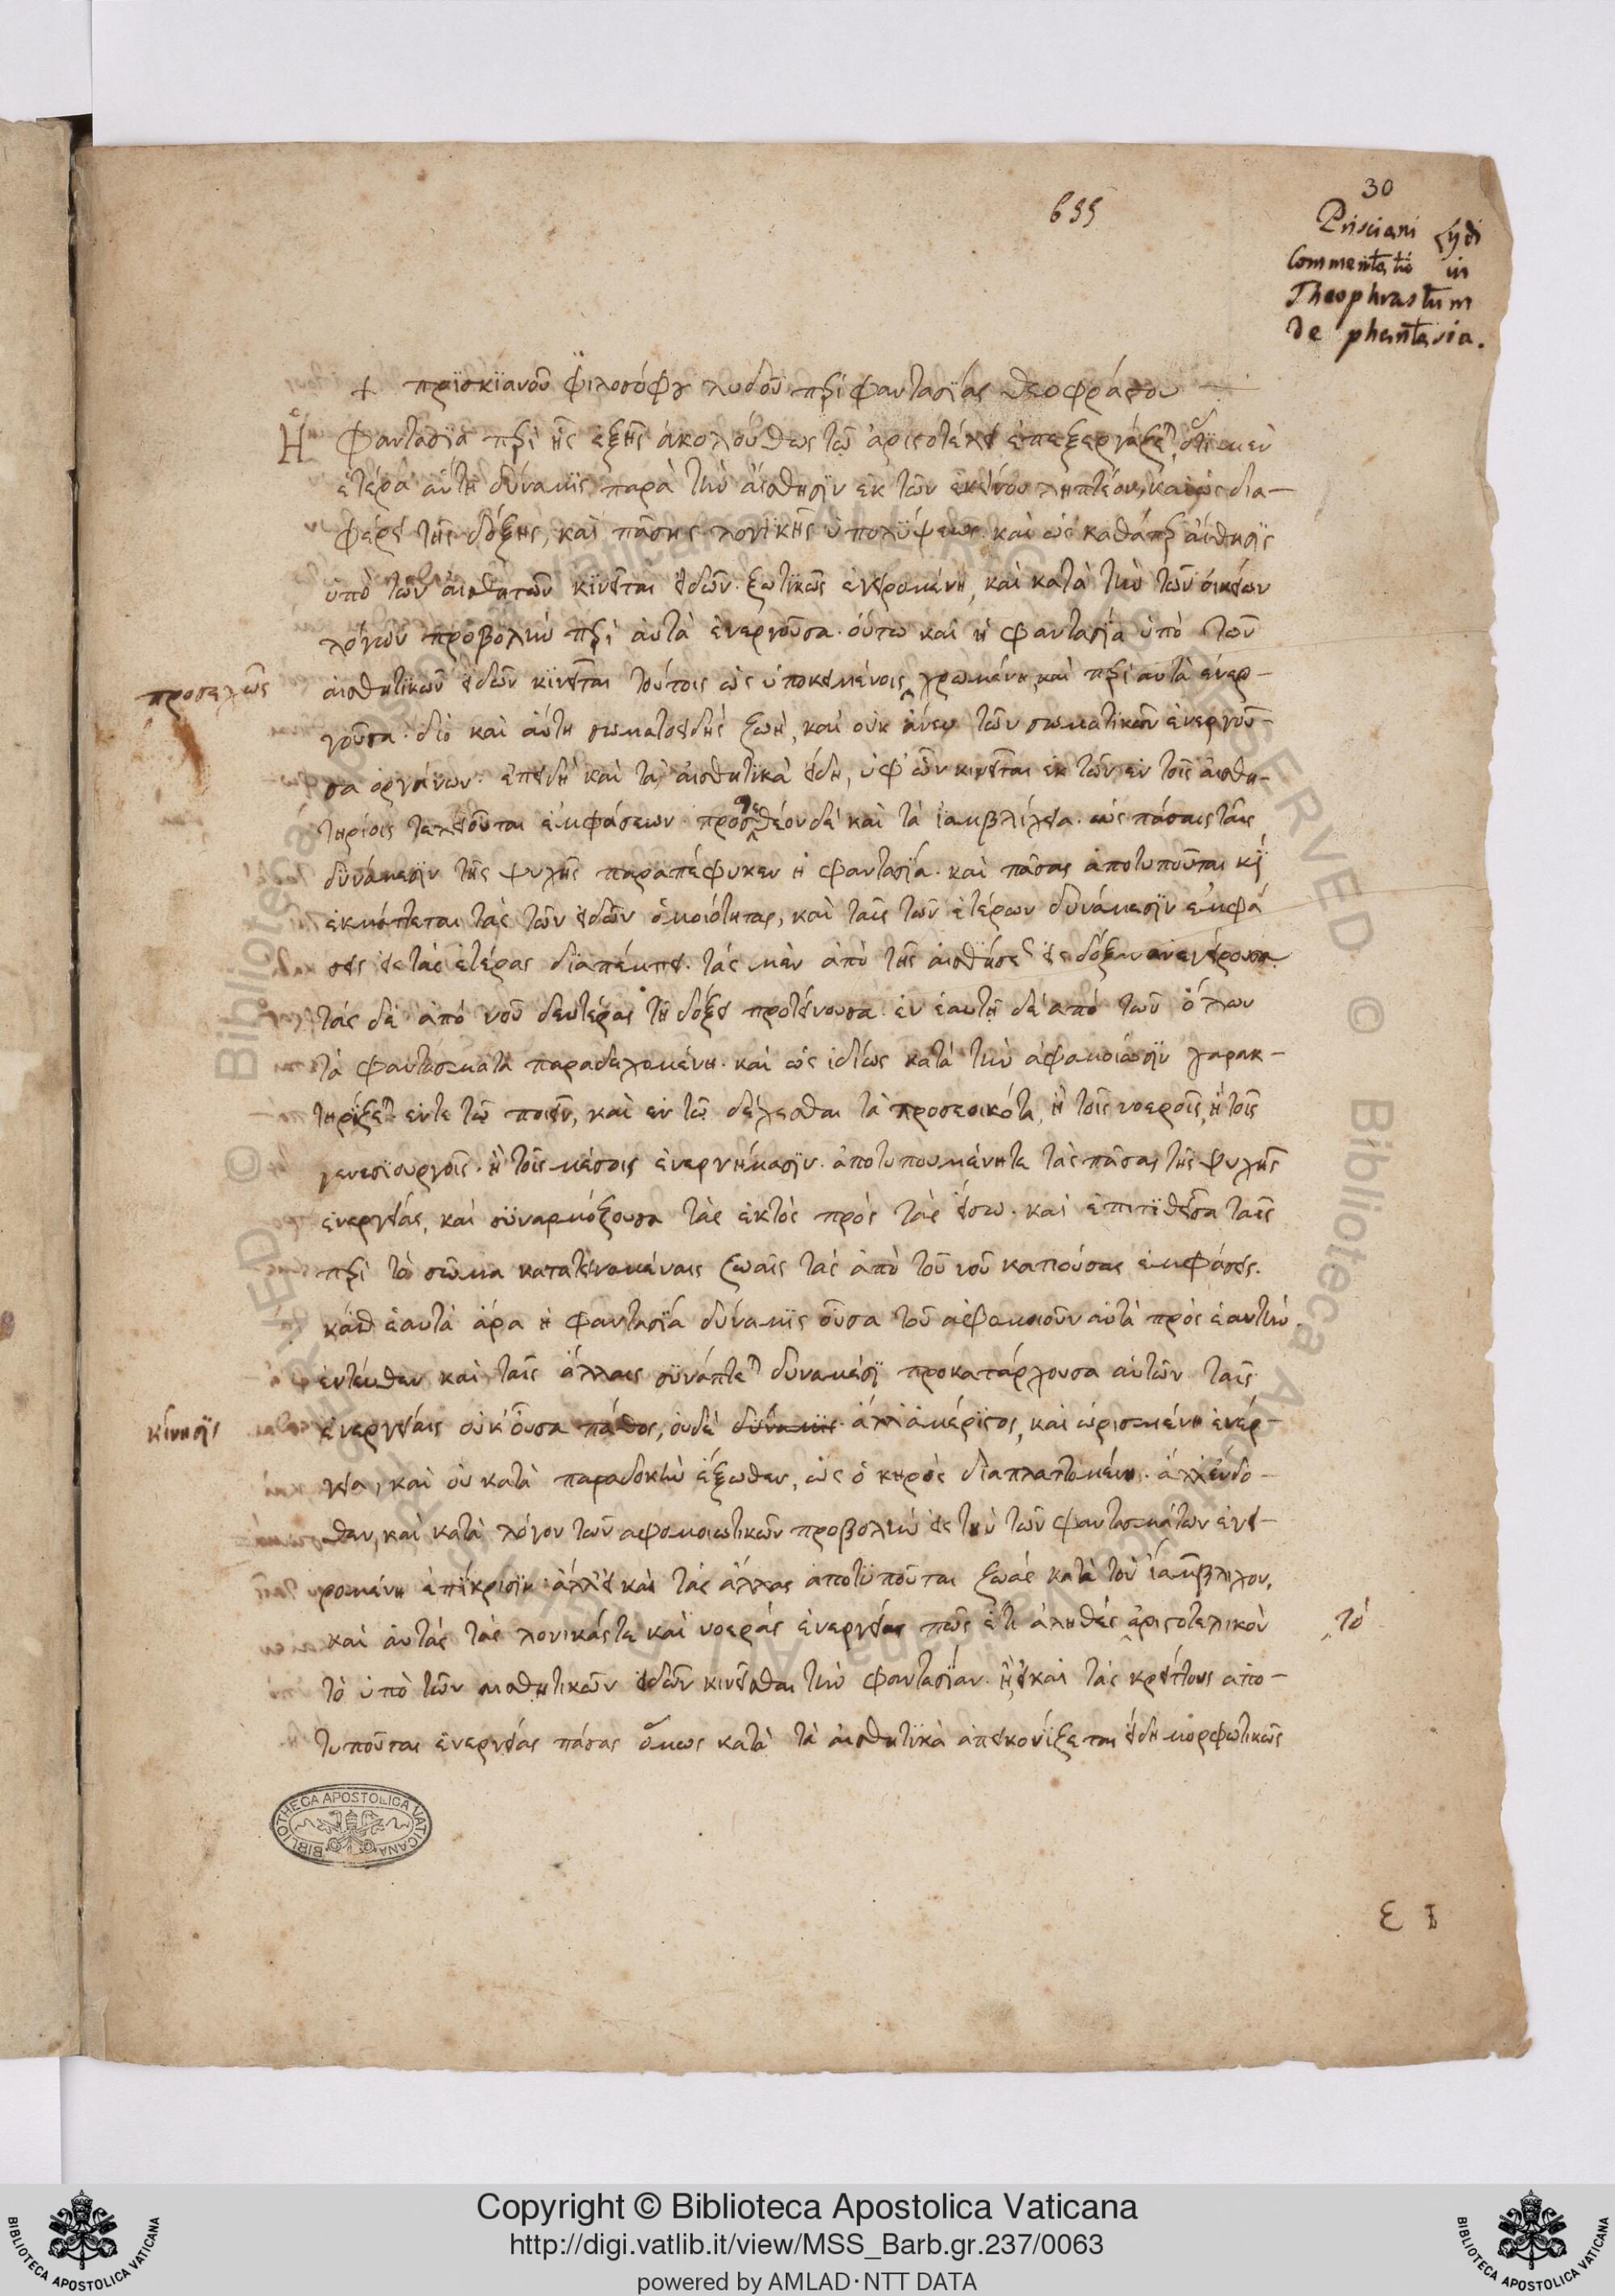 30
655
Prisciani Lydi
Commentatio in
Theophrastum
de phantasia.
+ πρϊσκϊανοῦ φιλοσόφου λυδοῦ περὶ φαντασΐας θεοφράστου
Ἡ φαντασΐα περὶ ἧς ἑξῆς ἀκολούθως τῶ ἀριστοτέλει ἐπεξεργάζεται, ὅτι μὲν
ἑτέρα αὕτη δύναμϊς παρὰ τὴν αἴσθησϊν ἐκ τῶν ἐκείνου ληπτέον, καὶ ὡς δια-
φέρει τῆς δόξης, καὶ πάσης λογϊκῆς ὑπολΰψεως. καὶ ὡς καθάπερ αἴσθησϊς
ὑπὸ τῶν αἰσθητῶν κϊνεῖται εἰδῶν. ζωτϊκῶς ἐγειρομένη, καὶ κατὰ τὴν τῶν οἰκείων
λόγων προβολὴν περὶ αὐτὰ ἐνεργοῦσα. οὕτω καὶ ἡ φαντασΐα ὑπὸ τῶν
προσεχῶς
αἰσθητϊκῶν εἰδῶν κϊνεῖται τούτοις ὡς ὑποκειμένοις χρωμένη, καὶ περὶ αὐτὰ ἐνερ-
γοῦσα. διὸ καὶ αὕτη σωματοειδὴς ζωὴ, καὶ οὐκ ἄνευ τῶν σωματικῶν ἐνεργοῦ-
σα ὀργάνων. ἐπειδὴ καὶ τὰ αἰσθητϊκὰ εἴδη, ὑφ' ὧν κινεῖται ἐκ τῶν ἐν τοῖς αἰσθη-
τηρίοις τελειοῦται ἐμφάσεων. προσθετέον δὲ καὶ τὰ ἰαμβλίχεια. ὡς πάσαις ταῖς
δυνάμεσϊν τῆς ψυχῆς παραπέφυκεν ἡ φαντασΐα. καὶ πάσας ἀποτυποῦται καὶ
ἐκμάττεται τὰς τῶν εἰδῶν ὁμοιότητας, καὶ ταῖς τῶν ἑτέρων δυνάμεσϊν ἐμφά
σεις εἰς τὰς ἑτέρας δϊαπέμπει. τὰς μὲν ἀπὸ τῆς αἰσθήσεως εἰς δόξαν ἀνεγείρουσα.
τὰς δὲ ἀπὸ νοῦ δευτέρας τῆ δόξει προτείνουσα. ἐν ἑαυτῆ δὲ ἀπὸ τῶν ὅλων
τὰ φαντάσματα παραδεχομένη. καὶ ὡς ἰδίως κατὰ τὴν ἀφομοίωσϊν χαρακ-
τηρϊζεται ἔν τε τῶ ποιεῖν, καὶ ἐν τῶ δέχεσθαι τὰ προσεοικότα, ἢ τοῖς νοεροῖς, ἢ τοῖς
γενεσϊουργοῖς. ἢ τοῖς μέσοις ἐνεργήμασϊν. ἀποτυπουμένη τε τὰς πάσας τῆς ψυχῆς
ἐνεργείας, καὶ συναρμόζουσα τὰς ἐκτὸς πρὸς τὰς εἴσω. καὶ ἐπιτϊθεῖσα ταῖς
περὶ τὸ σῶμα κατατεινομέναις ζωαῖς τὰς ἀπὸ τοῦ νοῦ κατιούσας ἐμφάσεις.
κάθ ἑαυτὰ ἄρα ἡ φαντασΐα δύναμϊς οὖσα τοῦ ἀφομοιοῦν αὐτὰ πρὸς ἑαυτὴν.
ἐντεῦθεν καὶ ταῖς ἄλλαις συνάπτεται δυναμέσϊ προκατάρχουσα αὐτῶν ταῖς
κίνησϊς
ἐνεργείαις οὐκ οὖσα πάθος, οὐδὲ δύναμϊς. ἀλλ' ἀμέρϊστος, καὶ ὡρισμένη ἐνέρ-
γεια, καὶ οὐ κατὰ παραδοκὴν ἔξωθεν, ὡς ὁ κηρὸς διαπλαττομένη. ἀλλ' ἔνδο-
θεν, καὶ κατὰ λόγον τῶν ἀφομοιωτικῶν προβολὴν εἰς τὴν τῶν φαντασμάτων ἐγει-
ρομένη ἐπΐκρισϊν. ἀλλ' εἰ καὶ τὰς ἄλλας ἀποτυποῦται ζωάς κατὰ τὸν ἰάμβλιχον,
καὶ αὐτὰς τὰς λογικάς τε καὶ νοερὰς ἐνεργείας πῶς ἔτι ἀληθὲς ἀριστοτελικὸν
τὸ
τὸ ὑπὸ τῶν αἰσθητικῶν εἰδῶν κινεῖσθαι τὴν φαντασΐαν. ἢ εἰ καὶ τὰς κρείττους ἀπο-
τυποῦται ἐνεργείας πάσας ὅμως κατὰ τὰ αἰσθητϊκὰ ἀπεικονίζεται εἴδη μορφωτικῶς
BIBLIOTHECA APOSTOLICA VATICANA
© Biblioteca Apostolica Vaticana ALL RIGHTS RESERVED
Copyright © Biblioteca Apostolica Vaticana
http://digi.vatlib.it/view/MSS_Barb.gr.237/0063
powered by AMLAD·NTT DATA
BIBLIOTECA APOSTOLICA VATICANA
BIBLIOTECA APOSTOLICA VATICANA